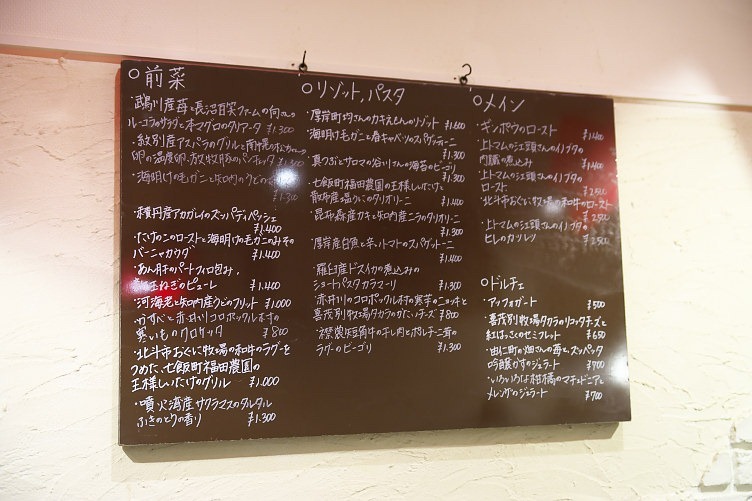 ○前菜
・鵡川産苺と長沼百笑ファームの向さんの
ルーコラのサラダと本マグロのタリアータ ¥1.300
・紋別産アスパラのグリルと
卵の温度卵、放牧豚のパンチェッタ ¥1.300
・海明けの毛ガニと知内のうどの
¥1.300
・積丹産アカガレイのズッパディペッシェ
¥1.400
・たけのこのローストと海明けの毛ガニのみその
バーニャカウダ ¥1.400
・あん肝のパートフィロ包み、
玉ねぎのピューレ ¥1.400
・河海老と知内産うどのフリット ¥1.000
・かすべと赤井川コロポックル村の
寒いものクロケッタ ¥800
・北斗市おぐに牧場の和牛のラグーを
つめた、七飯町福田農園の
王様しいたけのグリル ¥1.000
・噴火湾産サクラマスのタルタル
ふきのとうの香り ¥1.300
○リゾット,パスタ
・厚岸町 さんのカキえもんのリゾット ¥1.600
・海明け毛ガニと春キャベツのスパゲティーニ
¥1.300
・真つぶとサロマの谷川さんの海苔のピーゴリ
¥1.300
・七飯町福田農園の王様しいたけと
散布産塩うにのタリオリーニ ¥1.400
・昆布森産カキと知内産ニラのタリオリーニ
¥1.400
・厚岸産白魚と辛いトマトのスパゲットーニ
¥1.400
・羅臼産ドスイカの煮込みの
ショートパスタカラマーリ ¥1.300
・赤井川のコロポックル村の寒芋のニョッキと
喜茂別牧場タカラのタカンチーズ ¥800
・襟裳短角牛の干し肉とポルチーニ茸の
ラグーのピーゴリ ¥1.300
○メイン
・ギンポウのロースト ¥1.400
・上トマムの江頭さんのイノブタの
内臓の煮込み ¥1.400
・上トマムの江頭さんのイノブタの
ロースト ¥2.500
・北斗市おぐに牧場の和牛のロースト
¥2.500
・上トマムの江頭さんのイノブタの
ヒレのカツレツ ¥2.500
○ドルチェ
・アッフォガート ¥500
・喜茂別牧場タカラのリコッタチーズと
紅はっさくのセミフレット ¥650
・由仁町の畑さんの苺と、ズッパッタ
吟醸かすのジェラート ¥700
・いろいろな柑橘のマチェドニアと
メレンゲのジェラート ¥700